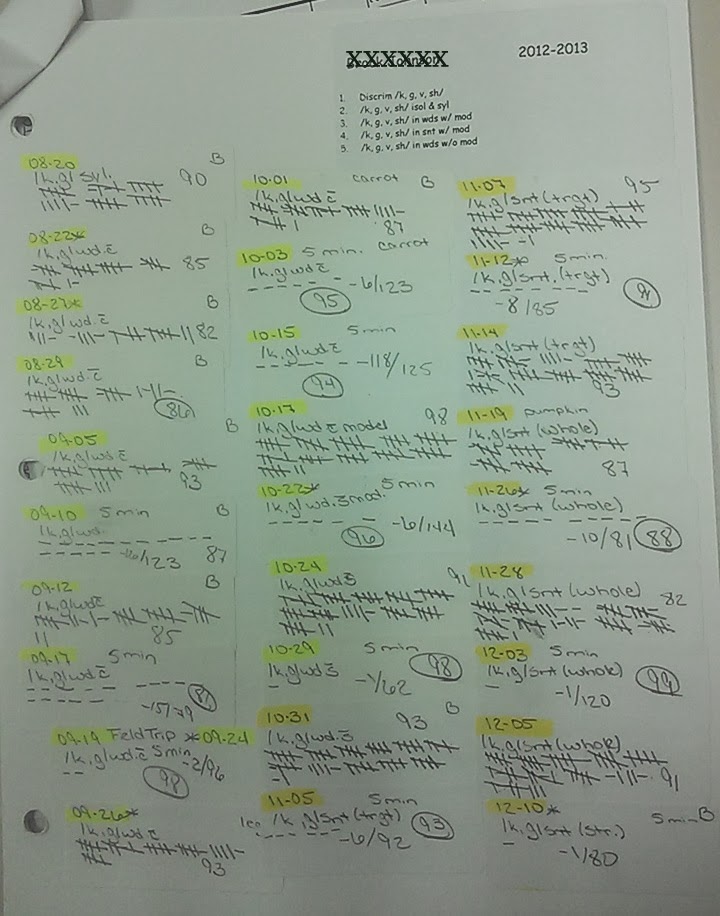 XXXXXX
2012-2013
1. Discrim /k, g, v, sh/
2. /k, g, v, sh/ isol & syl
3. /k, g, v, sh/ in wds w/ mod
4. /k, g, v, sh/ in snt w/ mod
5. /k, g, v, sh/ in wds w/o mod
08-20 B
/k,g/ syl. 90
08-22* B
/k,g/wd c̄ 85
08-27* B
/k,g/wd.c̄ 82
08-29 B
/k,g/wd c̄
86
09-05 B
/k,g/wd c̄
93
09-10 5 min B
/k,g/wd.
-16/123 87
09-12 B
/k,g/wd c̄
85
09-17 5min
/k,g/wd c̄
-15/79
09-19 Feld Trip *09-24
/k,g/wd.c̄ 5min -2/96
98
09-26*
/k,g/wd c̄
93
10-01 carrot B
/k,g/wd c̄
87
10-03 5 min. carrot
/k,g/wd c̄ -6/123
95
10-15 5min
/k,g/wd c̄ -118/125
94
10-17 98
/k,g/wd c̄ model
10-22* 5min
/k,g/wd. s̄ mod. -6/144
96
10-24 91
/k,g/wd s̄
10-29 5min 98
/k,g/wd s̄ -1/62
10-31 93 B
/k,g/wd.s̄
11-05 5min
/k,g/snt (trgt) 93
-6/92
11-07 95
/k,g/snt (trgt)
11-12* 5min.
/k,g/snt. (trgt)
-8/85
11-14
/k,g/snt (trgt)
93
11-19 pumpkin
/k,g/snt (whole)
87
11-26* 5min
/k,g/snt (whole)
-10/81 88
11-28
/k,g/snt (whole) 82
12-03 5min
/k,g/snt (whole) 99
-1/120
12-05
/k,g/snt (whole)
91
12-10* 5min B
/k,g/snt (str.)
-1/80